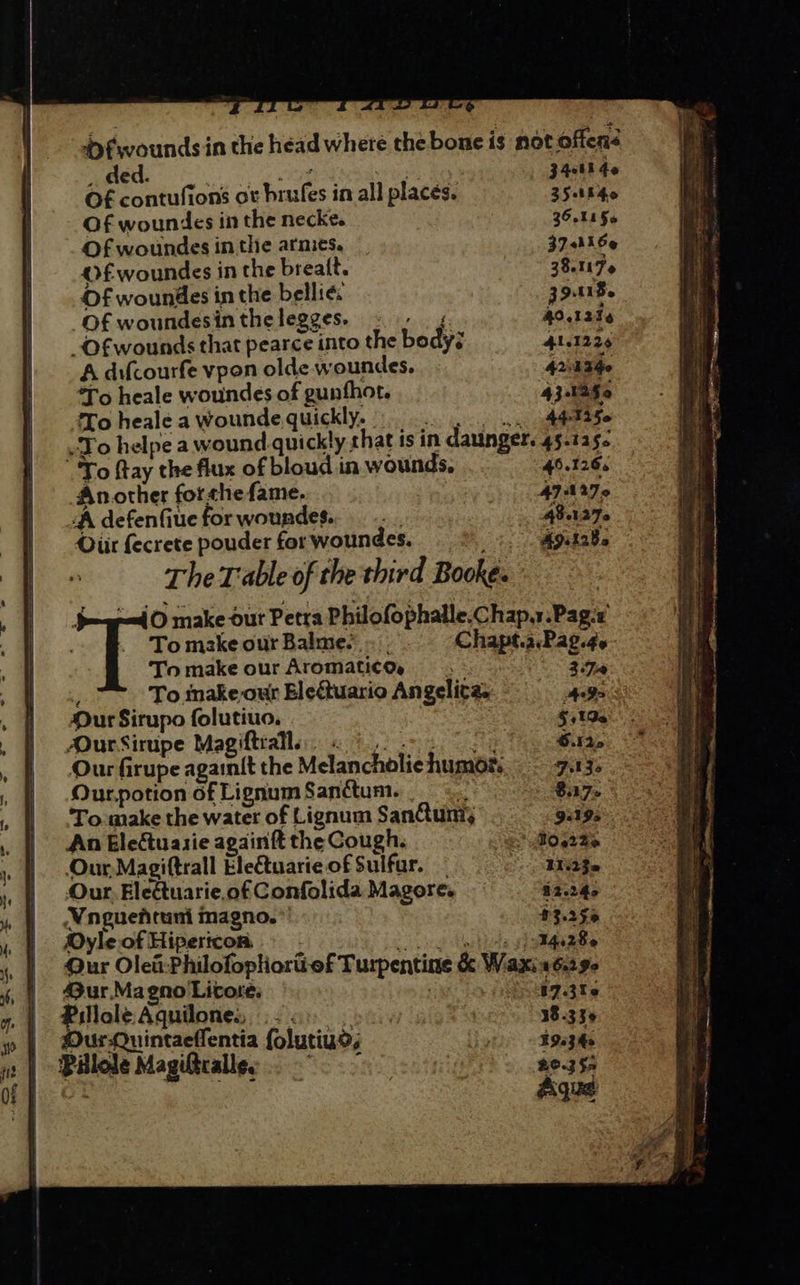 Of wounds in the head where the bone is not offen-
ded. 34.114.
Of contuſions or bruſes in all places. 35.114.
Of woundes in the necke. 36.115.
Of woundes in the armes. 37.116.
Of woundes in the breaſt. 38.117.
Of woundes in the bellie. 39.118.
Of woundes in the legges. 40.121.
Of wounds that pearce into the body. 41.122.
A diſcourſe vpon olde woundes. 42.
To heale woundes of gunſhot. 43.
To heale a wounde quickly. 44.125.
To helpe a wound quickly that is in daunger. 45.125.
To ſtay the flux of bloud in wounds. 46.126.
An other for the ſame. 47.127.
A defenſiue for woundes. 48.127.
Our ſecrete pouder for woundes. 49.128.
The Table of the third Booke.
TO make our Petra Philoſophalle. Chap.1. Pag.1
To make our Balme. Chapt.2. Pag.4.
To make our Aromatico, 3.7.
To make our Electuario Angelica. 4.9.
Our Sirupo ſolutiuo. 5.10.
Our Sirupe Magiſtrall. 6.12.
Our ſirupe againſt the Melancholie humor. 7.13.
Our potion of Lignum Sanctum. 8.17.
To make the water of Lignum Sanctum, 9.19.
An Electuarie againſt the Cough. 10.22.
Our Magiſtrall Electuarie of Sulfur. 11.23.
Our Electuarie of Conſolida Magore. 12.24.
Vnguentum magno. 13.25.
Oyle of Hipericon. 14.28.
Our Oleū Philoſophorū of Turpentine & Wax. 16.29.
Our Magno Licore. 17.31.
Pillole Aquilone. 18.33.
Our Quintaeſſentia ſolutiuo, 19.34.
Pillole Magiſtralle. 20.35.
Aqua